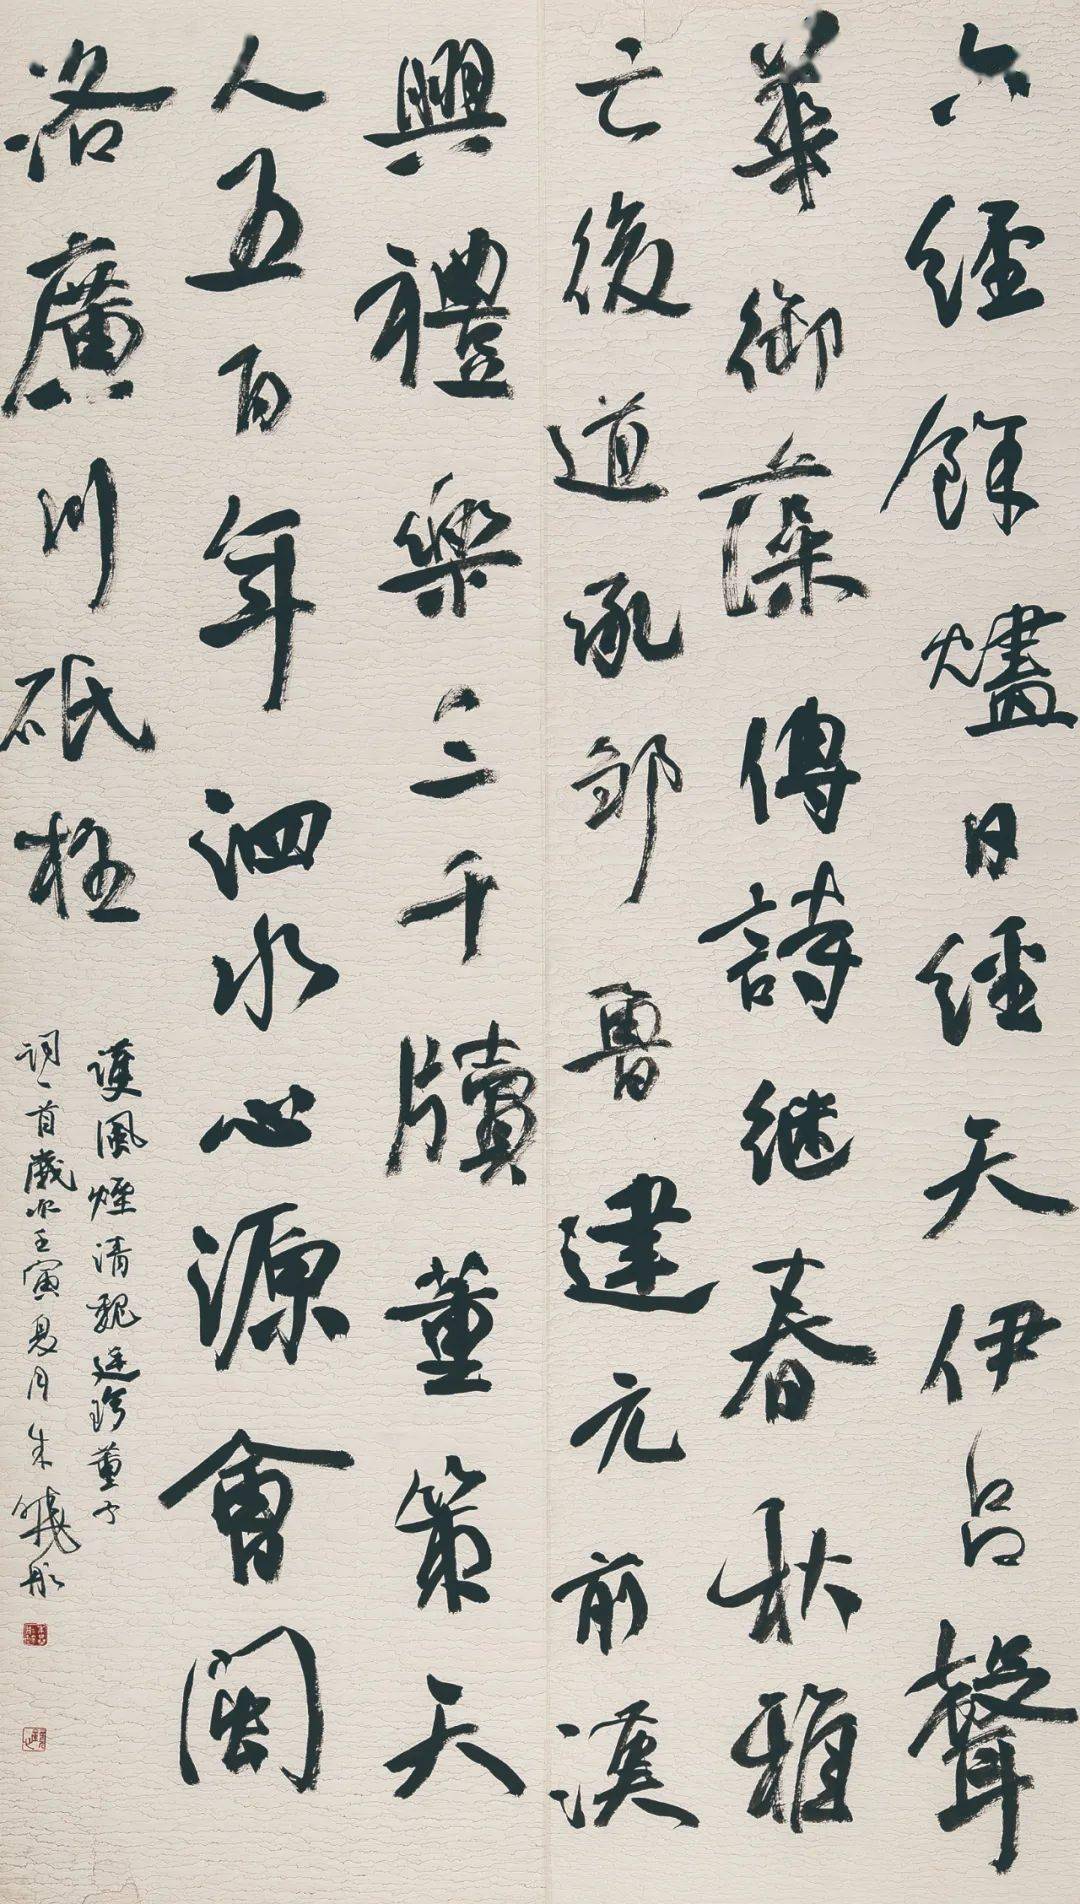 六經餘燼日經天伊呂聲
華御藻傳詩继春秋雅
亡後道承鄒魯建元前漢
興禮樂三千牘董策天
人五百年泗水心源會閩
洛廣川砥柱
護風煙清魏廷珍董子
詞一首歲次壬寅夏月朱曉彤